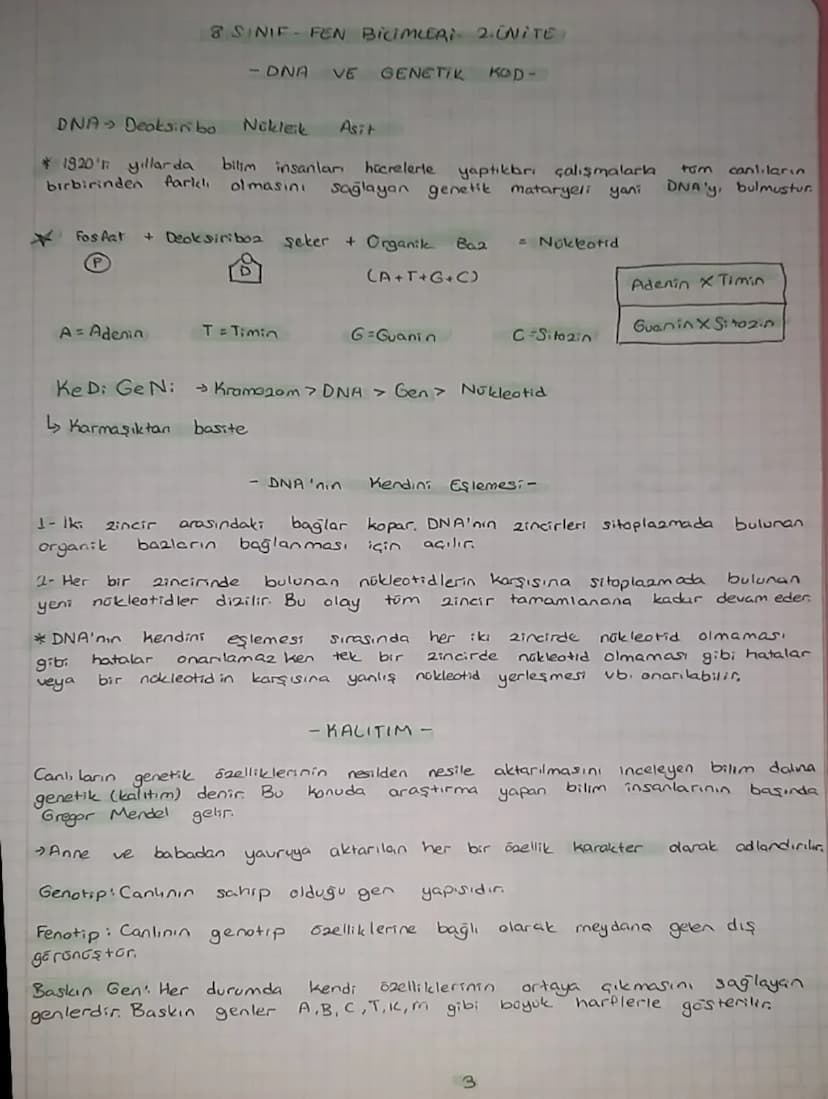 8 SINIF - FEN BİLİMLERİ 2.ÜNİTE
- DNA VE GENETİK KOD -
DNA → Deoksiribo Nükleik Asit
* 1920'li yıllarda bilim insanları hücrelerle yaptıkları çalışmalarla tüm canlıların
birbirinden farklı olmasını sağlayan genetik mataryeli yani DNA'yı bulmuştur.
* Fosfat + Deoksiriboz şeker + Organik Baz = Nükleotid
P D (A+T+G+C)
Adenin X Timin
Guanin X Sitozin
A = Adenin T = Timin G = Guanin C = Sitozin
KeDi GeNi → Kromozom > DNA > Gen > Nükleotid
↳ Karmaşıktan basite
- DNA'nın Kendini Eşlemesi -
1- İki zincir arasındaki bağlar kopar. DNA'nın zincirleri sitoplazmada bulunan
organik bazların bağlanması için açılır.
2- Her bir zincirinde bulunan nükleotidlerin karşısına sitoplazmada bulunan
yeni nükleotidler dizilir. Bu olay tüm zincir tamamlanana kadar devam eder.
* DNA'nın kendini eşlemesi sırasında her iki zincirde nükleotid olmaması
gibi hatalar onarılamaz ken tek bir zincirde nükleotid olmaması gibi hatalar
veya bir nükleotidin karşısına yanlış nükleotid yerleşmesi vb. onarılabilir.
- KALITIM -
Canlıların genetik özelliklerinin nesilden nesile aktarılmasını inceleyen bilim dalına
genetik (kalıtım) denir. Bu konuda araştırma yapan bilim insanlarının başında
Gregor Mendel gelir.
→ Anne ve babadan yavruya aktarılan her bir özellik karakter olarak adlandırılır.
Genotip: Canlının sahip olduğu gen yapısıdır.
Fenotip: Canlının genotip özelliklerine bağlı olarak meydana gelen dış
görünüştür.
Baskın Gen: Her durumda kendi özelliklerinin ortaya çıkmasını sağlayan
genlerdir. Baskın genler A, B, C, T, K, M gibi büyük harflerle gösterilir.
3